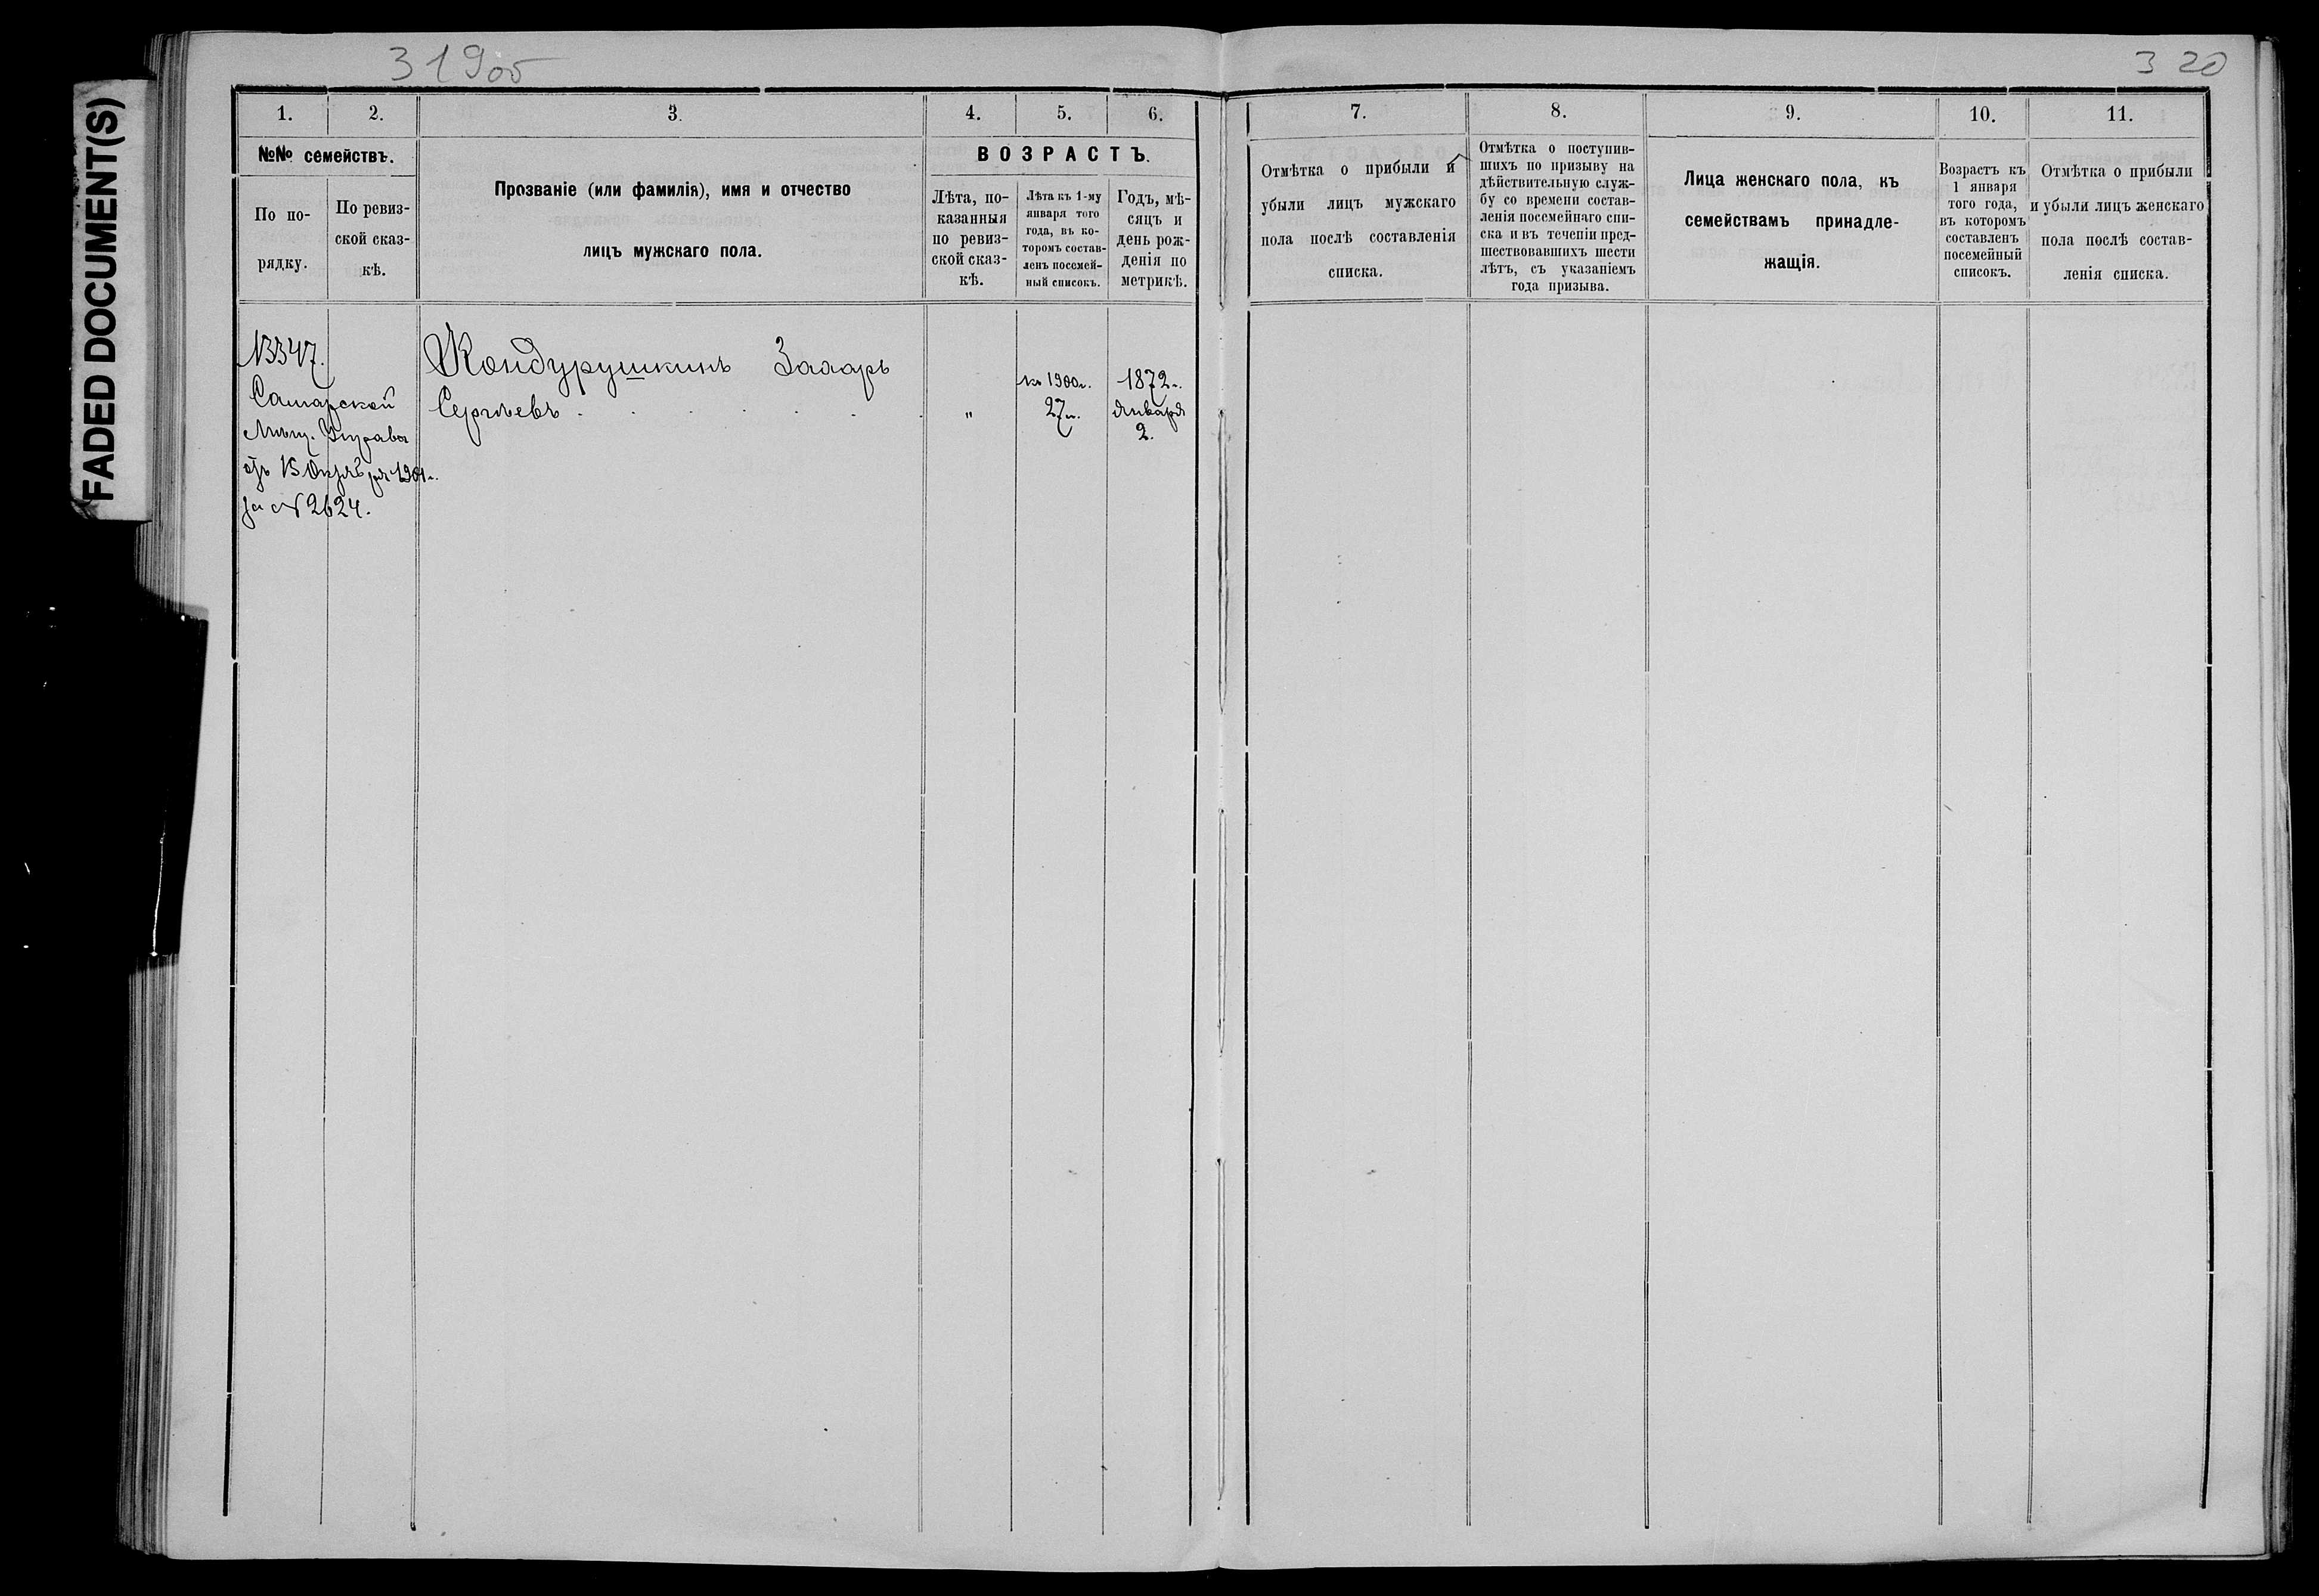 FADED DOCUMENT(S)
319об
320
1.
2.
3.
4.
5.
6.
7.
8.
9.
10.
11.
№№ семействъ.
По по-
рядку.
По ревиз-
ской сказ-
кѣ.
Прозваніе (или фамилія), имя и отчество
лицъ мужскаго пола.
ВОЗРАСТЪ.
Лѣта, по-
казанныя
по ревиз-
ской сказ-
кѣ.
Лѣта къ 1-му
января того
года, въ ко-
торомъ состав-
ленъ посемей-
ный списокъ.
Годъ, мѣ-
сяцъ и
день рож-
денія по
метрикѣ.
Отмѣтка о прибыли и
убыли лицъ мужскаго
пола послѣ составленія
списка.
Отмѣтка о поступив-
шихъ по призыву на
дѣйствительную служ-
бу со времени состав-
ленія посемейнаго спи-
ска и въ теченіи пред-
шествовавшихъ шести
лѣтъ, съ указаніемъ
года призыва.
Лица женскаго пола, къ
семействамъ принадле-
жащія.
Возрастъ къ
1 января
того года,
въ которомъ
составленъ
посемейный
списокъ.
Отмѣтка о прибыли
и убыли лицъ женскаго
пола послѣ состав-
ленія списка.
Кондурушкинъ Захаръ
Сергѣевъ . . . . . "
къ 1900 г.
27 л.
1872 г.
Января
2.
Самарской
Мѣщ. Управы
отъ 15 Октября 1901 г.
за № 2624.